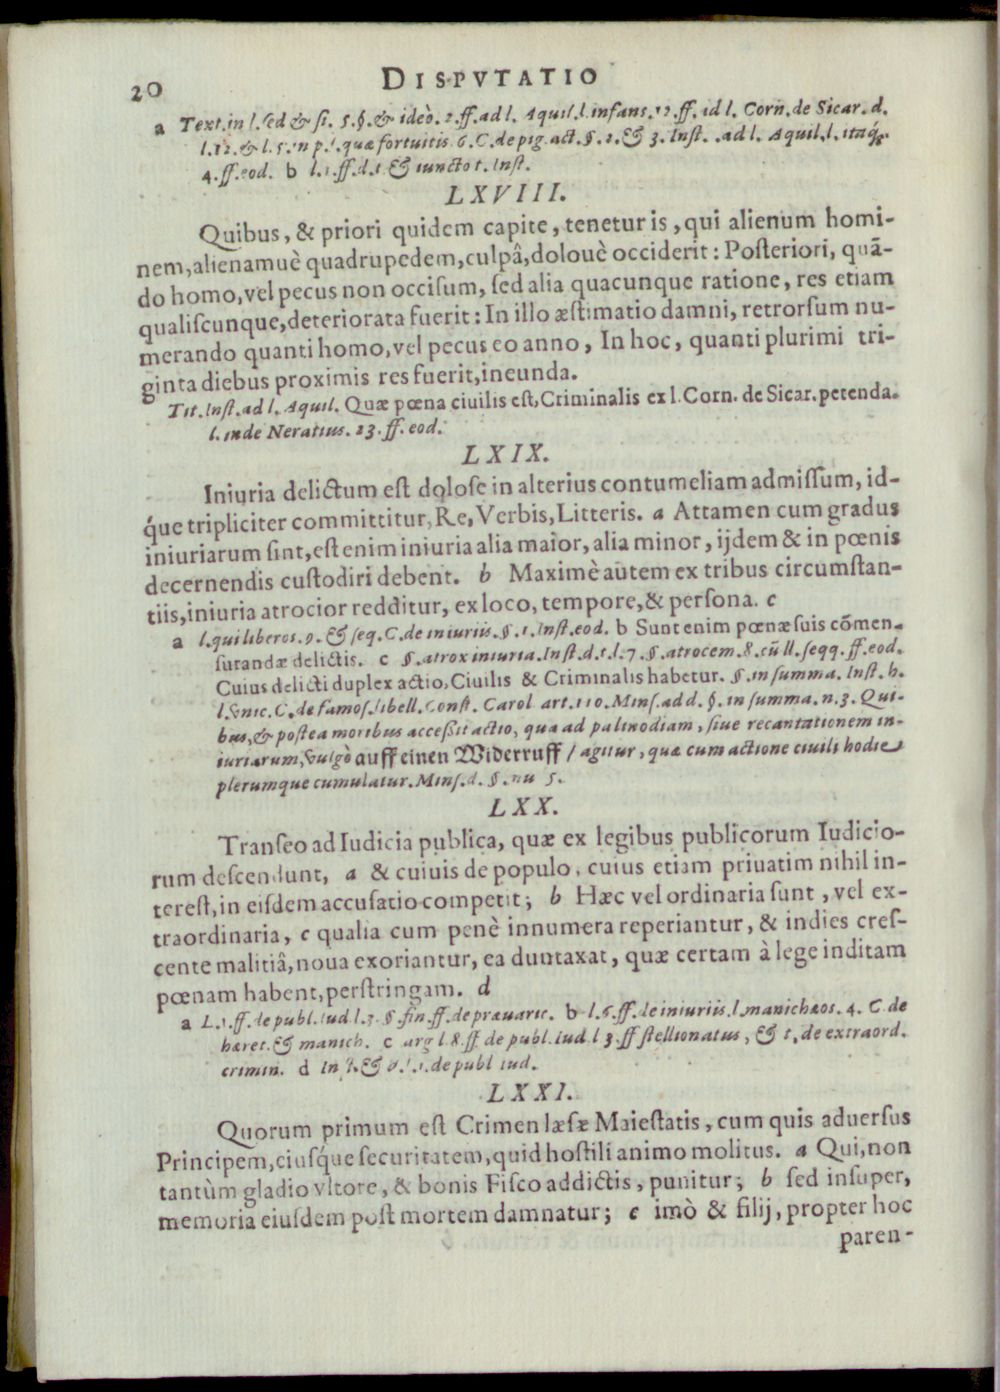 20 DISPVTATIO
a Text. in l. sed & si. 5. §. & ideò. 2. ff. ad l. Aquil. l. infans. 12. ff. ad l. Corn. de Sicar. d.
l. 12. & l. 5. in p. l. quæ fortuitis. 6. C. de pig. act. §. 2. & 3. Inst. ad l. Aquil. l. itaq́.
4. ff. eod. b l. 1. ff. d. t. & iuncto t. Inst.
LXVIII.
Quibus, & priori quidem capite, tenetur is, qui alienum homi-
nem, alienamuè quadrupedem, culpâ, dolouè occiderit: Posteriori, quā-
do homo, vel pecus non occisum, sed alia quacunque ratione, res etiam
qualiscunque, deteriorata fuerit: In illo æstimatio damni, retrorsum nu-
merando quanti homo, vel pecus eo anno, In hoc, quanti plurimi tri-
ginta diebus proximis res fuerit, ineunda.
Tit. Inst. ad l. Aquil. Quæ pœna ciuilis est, Criminalis ex l. Corn. de Sicar. petenda.
l. inde Neratius. 23. ff. eod.
LXIX.
Iniuria delictum est dolose in alterius contumeliam admissum, id-
q́ue tripliciter committitur, Re, Verbis, Litteris. a Attamen cum gradus
iniuriarum sint, est enim iniuria alia maior, alia minor, ijdem & in pœnis
decernendis custodiri debent. b Maximè autem ex tribus circumstan-
tiis, iniuria atrocior redditur, ex loco, tempore, & persona. c
a l. qui liberos. 9. & seq. C. de iniuriis. §. 1. Inst. eod. b Sunt enim pœnæ suis cōmen-
surandæ delictis. c §. atrox iniuria. Inst. d. t. l. 7. §. atrocem. 8. cū ll. seqq. ff. eod.
Cuius delicti duplex actio, Ciuilis & Criminalis habetur. §. in summa. Inst. h.
l. vnic. C. de famos. libell. Const. Carol art. 110. Mins. add. §. in summa. n. 3. Qui-
bus, & postea moribus accessit actio, qua ad palinodiam, siue recantationem in-
iuriarum, vulgò auff einen Widerruff / agitur, quæ cum actione ciuili hodie
plerumque cumulatur. Mins. d. §. nu 5.
LXX.
Transeo ad Iudicia publica, quæ ex legibus publicorum Iudicio-
rum descendunt, a & cuiuis de populo, cuius etiam priuatim nihil in-
terest, in eisdem accusatio competit; b Hæc vel ordinaria sunt, vel ex-
traordinaria, c qualia cum penè innumera reperiantur, & indies cres-
cente malitiâ, noua exoriantur, ea duntaxat, quæ certam à lege inditam
pœnam habent, perstringam. d
a L. 1. ff. de publ. iud. l. 3. §. fin. ff. de præuaric. b l. 5. ff. de iniuriis. l. manichæos. 4. C. de
hæret. & manich. c arg l. 8. ff de publ. iud. l 3. ff stellionatus, & t. de extraord.
crimin. d In l. 1. de publ iud.
LXXI.
Quorum primum est Crimen læsæ Maiestatis, cum quis aduersus
Principem, eiusq́ue securitatem, quid hostili animo molitus. a Qui, non
tantùm gladio vltore, & bonis Fisco addictis, punitur; b sed insuper,
memoria eiusdem post mortem damnatur; c imò & filij, propter hoc
paren-